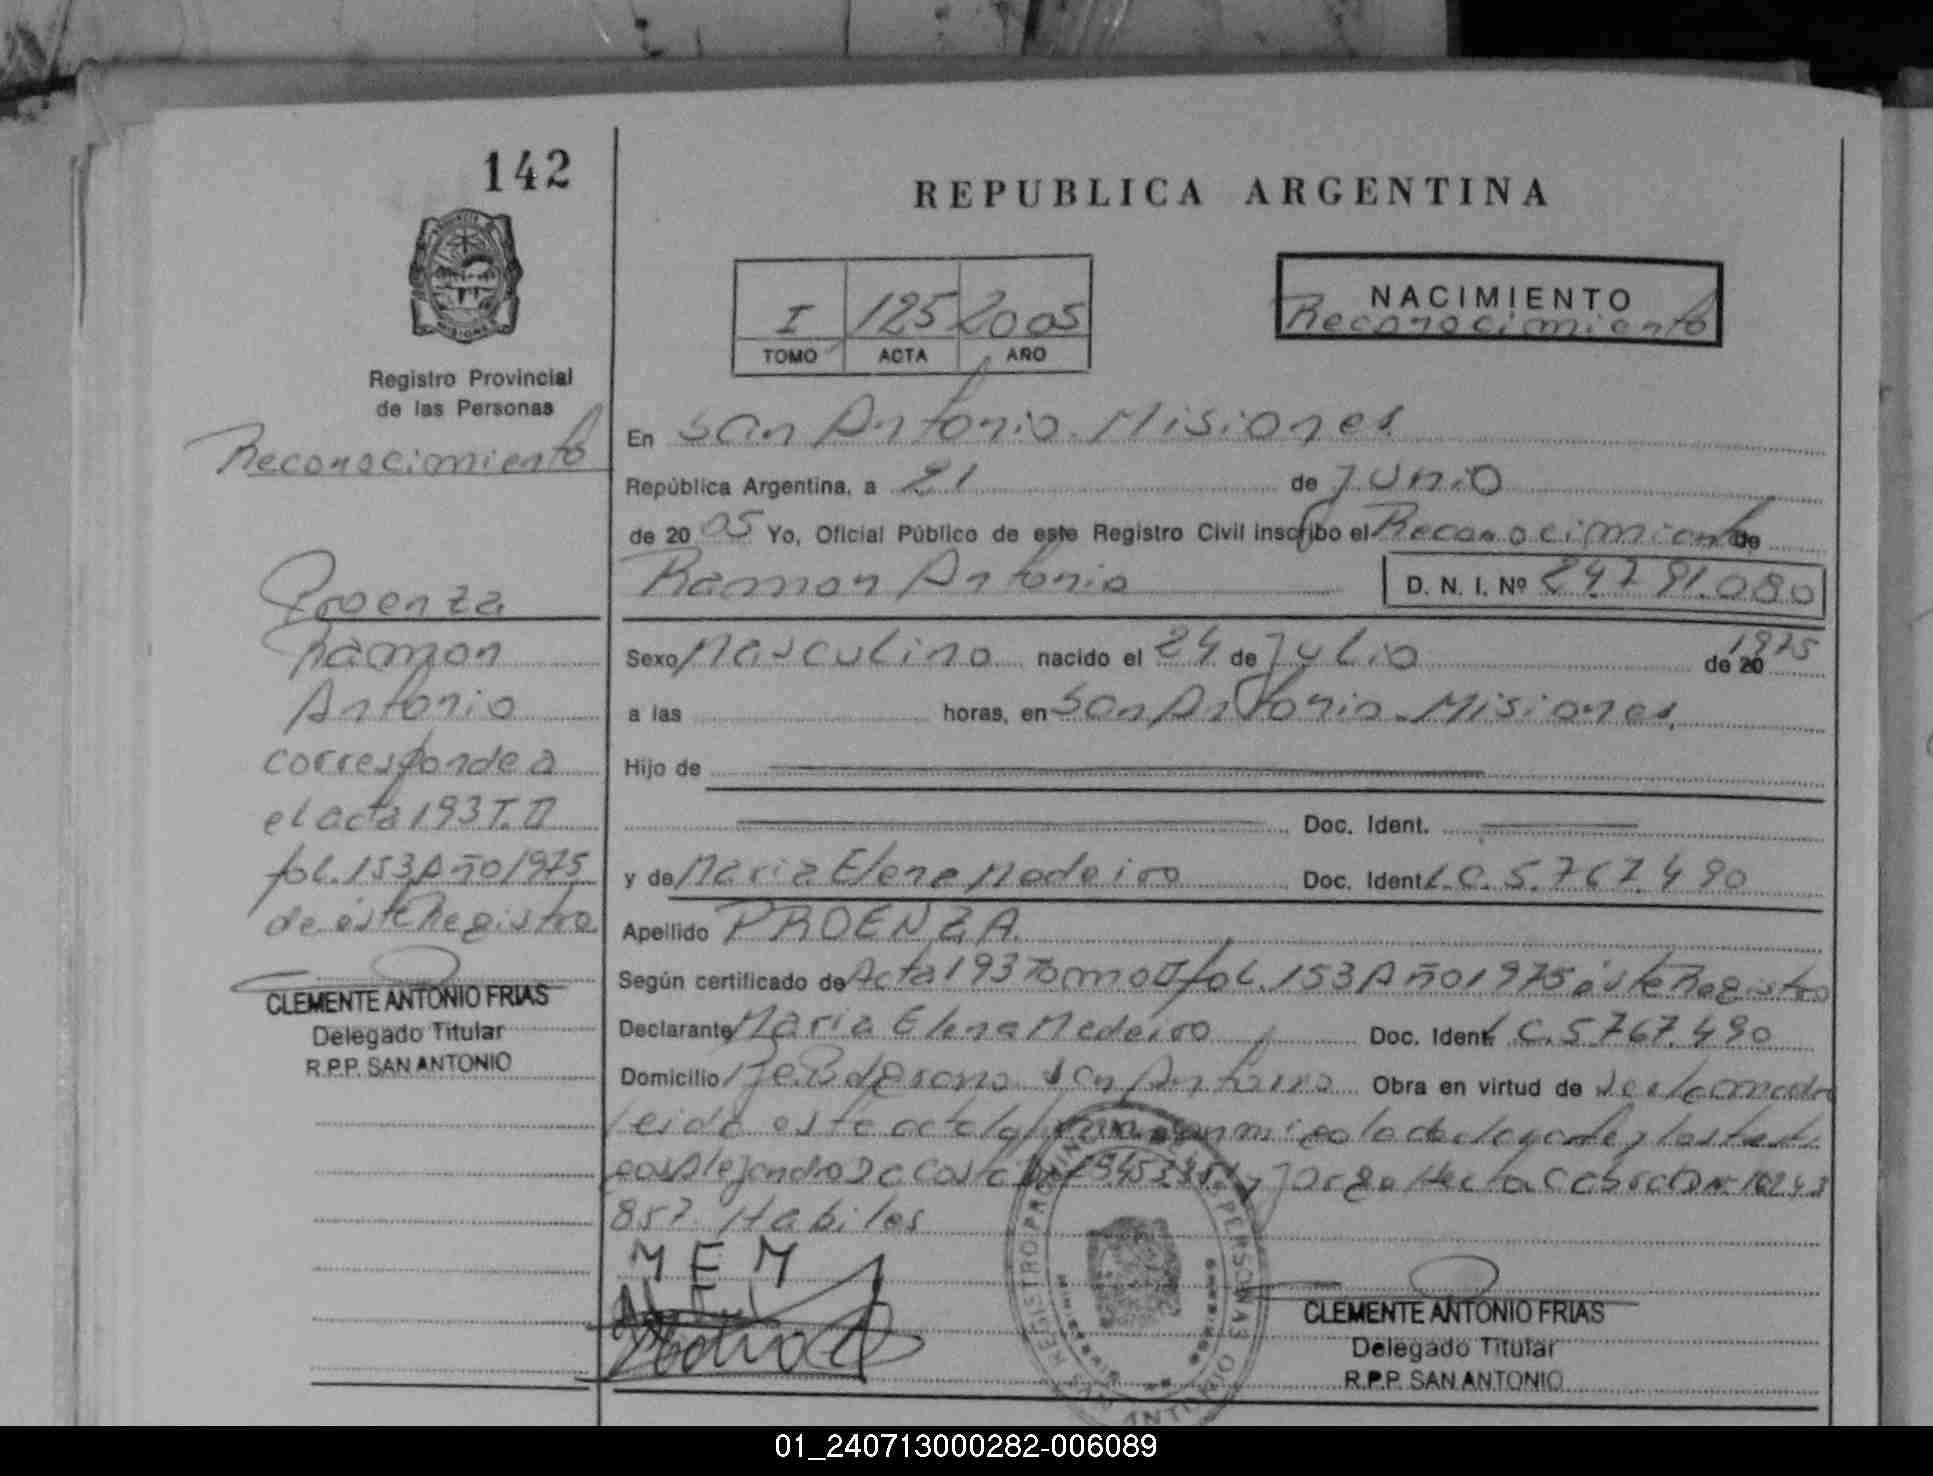 142
REPUBLICA ARGENTINA
I 125 2005
TOMO ACTA AÑO
NACIMIENTO
Reconocimiento
MISIONES
Registro Provincial
de las Personas
Reconocimiento
Proenza
Ramon
Antonio
corresponde a
el acta 193 T. II
fol. 153 Año 1975
de éste Registro.
CLEMENTE ANTONIO FRIAS
Delegado Titular
R.P.P. SAN ANTONIO
En San Antonio. Misiones
República Argentina, a 21 de Junio
de 20 05 Yo, Oficial Público de este Registro Civil inscribo el Reconocimiento de
Ramon Antonio D. N. I. Nº 24.291.080
Sexo Masculino nacido el 24 de Julio de 20 1975
a las horas, en San Antonio. Misiones.
Hijo de
Doc. Ident.
y de Maria Elena Medeiro Doc. Ident L.C. 5.767.490
Apellido PROENZA.
Según certificado de Acta 193 Tomo II fol. 153 Año 1975 éste Registro
Declarante Maria Elena Medeiro Doc. Ident L.C. 5767.490
Domicilio San Antonio Obra en virtud de ser la madre
leida este acta la y los
Alejandro Da Costa y Jorge
857. Habiles
M E M
REGISTRO PROVINCIAL PERSONAS
SAN ANTONIO
CLEMENTE ANTONIO FRIAS
Delegado Titular
R.P.P. SAN ANTONIO
01_240713000282-006089